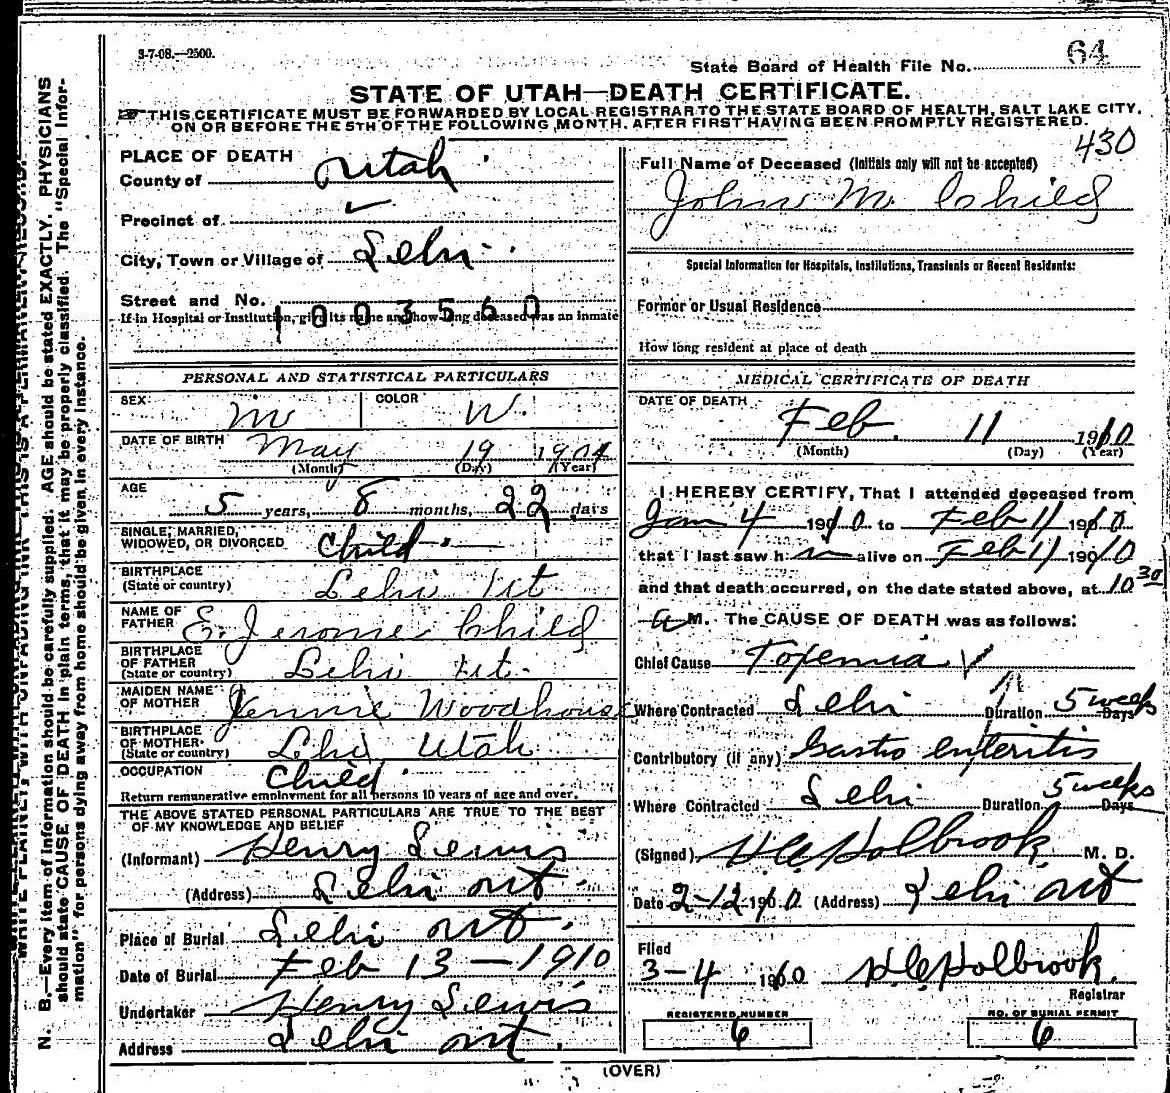 S-7-08.—2500.
State Board of Health File No. 64
STATE OF UTAH—DEATH CERTIFICATE.
THIS CERTIFICATE MUST BE FORWARDED BY LOCAL REGISTRAR TO THE STATE BOARD OF HEALTH, SALT LAKE CITY,
ON OR BEFORE THE 5TH OF THE FOLLOWING MONTH, AFTER FIRST HAVING BEEN PROMPTLY REGISTERED.
PLACE OF DEATH
County of Utah
Precinct of
City, Town or Village of Lehi
Street and No.
If in Hospital or Institution, give its name and how long deceased was an inmate
1003560
PERSONAL AND STATISTICAL PARTICULARS
SEX M COLOR W.
DATE OF BIRTH May 19 1904
(Month) (Day) (Year)
AGE
5 years, 8 months, 22 days
SINGLE, MARRIED,
WIDOWED, OR DIVORCED Child
BIRTHPLACE
(State or country) Lehi Ut
NAME OF
FATHER E. Jerome Child
BIRTHPLACE
OF FATHER
(State or country) Lehi Ut.
MAIDEN NAME
OF MOTHER Jennie Woodhouse
BIRTHPLACE
OF MOTHER
(State or country) Lehi Utah
OCCUPATION Child
Return remunerative employment for all persons 10 years of age and over.
THE ABOVE STATED PERSONAL PARTICULARS ARE TRUE TO THE BEST
OF MY KNOWLEDGE AND BELIEF
(Informant) Henry Lewis
(Address) Lehi Ut
Place of Burial Lehi Ut.
Date of Burial Feb 13—1910
Undertaker Henry Lewis
Address Lehi Ut.
430
Full Name of Deceased (Initials only will not be accepted)
John M. Child
Special Information for Hospitals, Institutions, Transients or Recent Residents:
Former or Usual Residence
How long resident at place of death
MEDICAL CERTIFICATE OF DEATH
DATE OF DEATH
Feb. 11 1910
(Month) (Day) (Year)
I HEREBY CERTIFY, That I attended deceased from
Jan 4 1910 to Feb 11 1910
that I last saw him alive on Feb 11 1910
and that death occurred, on the date stated above, at 10 30
a M. The CAUSE OF DEATH was as follows:
Chief Cause Toxemia
Where Contracted Lehi Duration 5 weeks Days
Contributory (if any) Gastro enteritis
Where Contracted Lehi Duration 5 weeks Days
(Signed) H C Holbrook M. D.
Date 2-12 1910 (Address) Lehi Ut
Filed
3-4 1910 H C Holbrook.
Registrar
REGISTERED NUMBER
6
NO. OF BURIAL PERMIT
6
(OVER)
N. B.—Every item of information should be carefully supplied. AGE should be stated EXACTLY. PHYSICIANS
should state CAUSE OF DEATH in plain terms, that it may be properly classified. The "Special Infor-
mation" for persons dying away from home should be given in every instance.